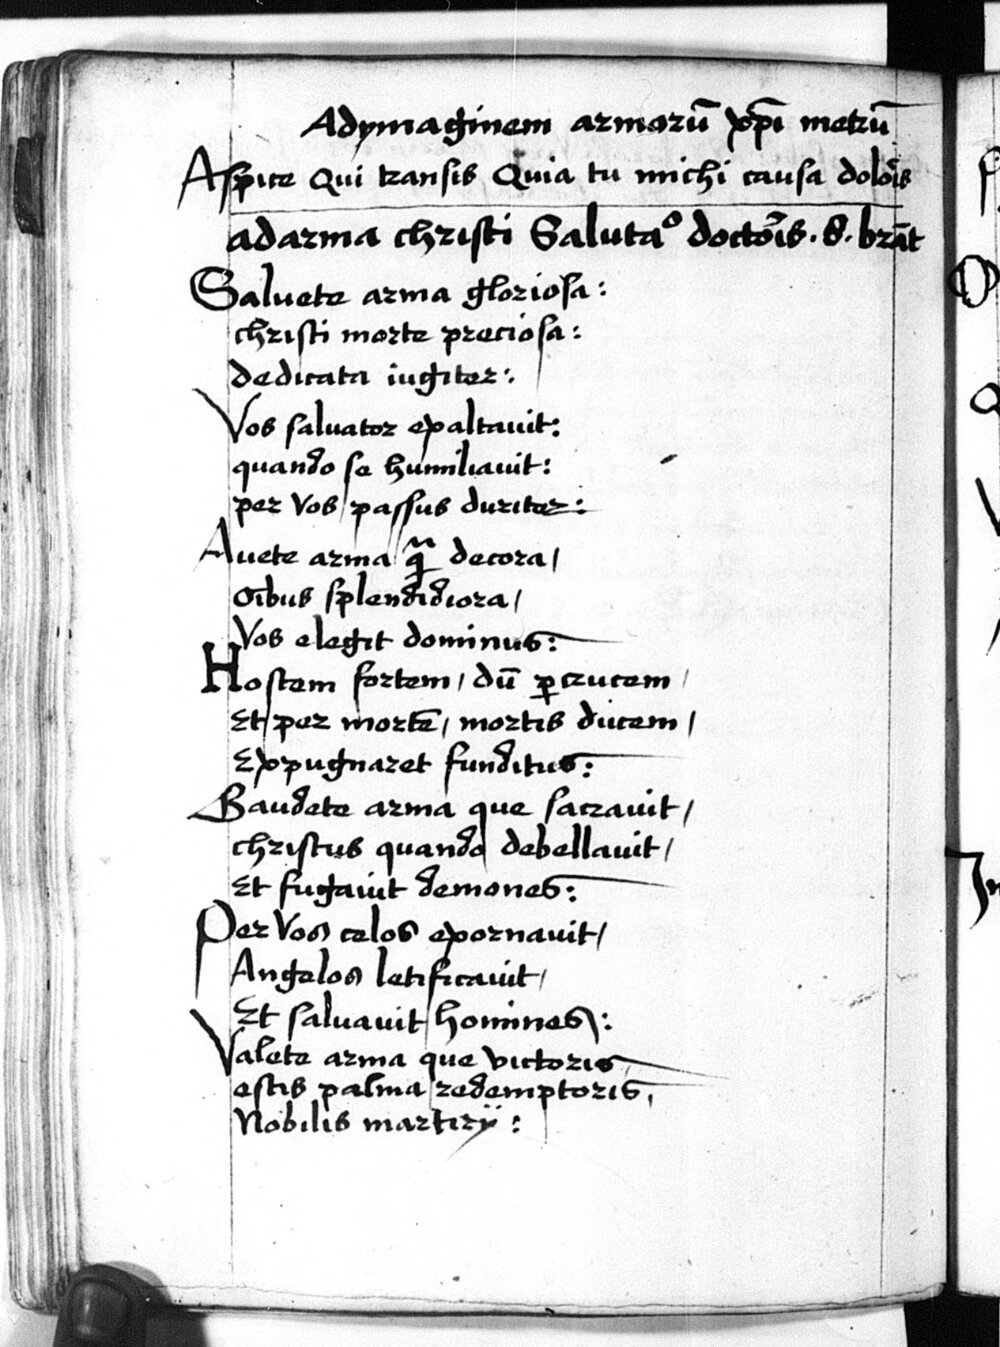 Ad ymaginem armorū xp̄i metrū
Aspice qui transis Quia tu michi causa dolōis
ad arma christi Salutaº doctōis . S . brāt
Saluete arma gloriosa :
christi morte preciosa :
dedicata iugiter :.
Vos saluator exaltauit :
quando se humiliauit :
per Vos passus duriter :
Auete arma qᷓ decora /
oībus splendidiora /
Vos elegit dominus :
Hostem fortem / dū ꝑ crucem /
Et per mortē / mortis ducem /
Expugnaret funditus :
Gaudete arma que sacrauit /
christus quando debellauit /
Et fugauit demones :
Per Vos celos exornauit /
Angelos letificauit /
Et saluauit homines :
Valete arma que victoris
estis palma redemptoris ,
Nobilis martirij :